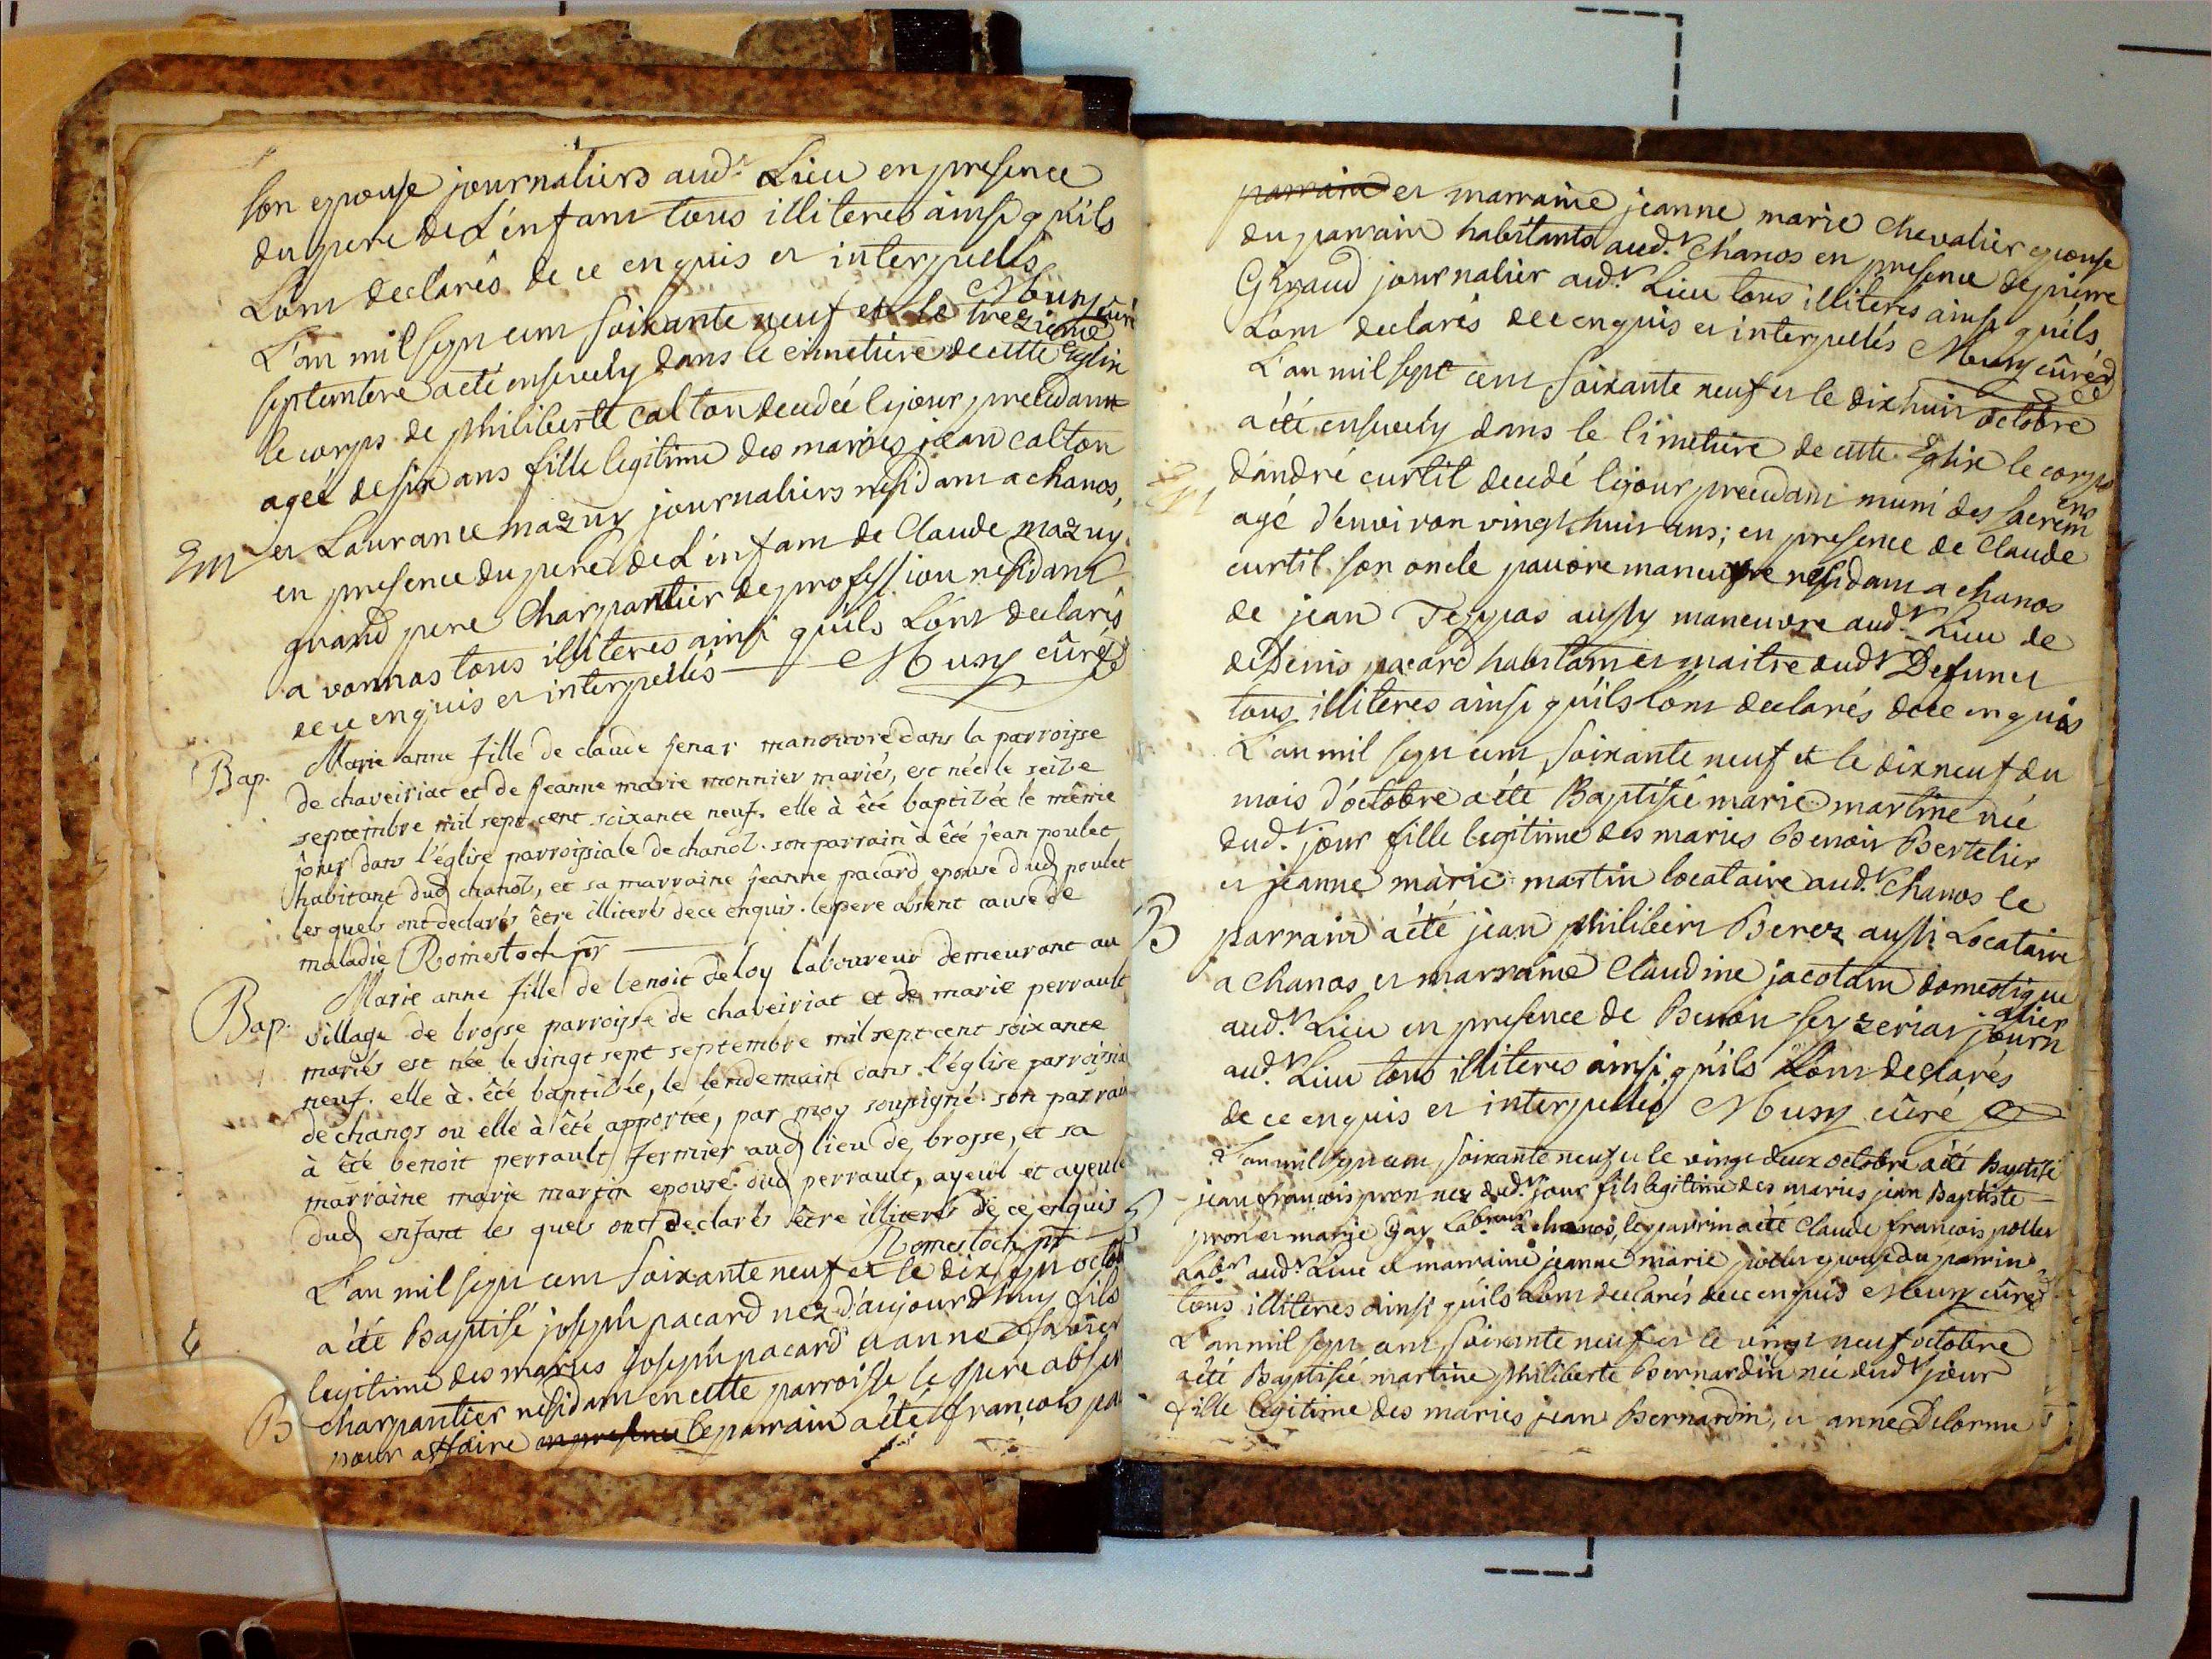 son epouse journaliers aud.t Lieu en presence
du pere de L'enfant tous illiteres ainsi qu'ils
L'ont declarés de ce enquis et interpellés
Musy curé
L'an mil sept cent soixante neuf et le treizieme
septembre a eté ensevely dans le cimetiere de cette Eglise
le corps de philiberte calton decedée le jour precedant
agée de six ans fille legitime des mariés jean calton
Em et Laurance mazuy journaliers residant a chanos,
en presence du pere de L'enfant de Claude mazuy
grand pere Charpantier de profession residant
a vonnas tous illiteres ainsi qu'ils L'ont declarés
de ce enquis et interpellés Musy curé
Bap. Marie anne fille de claude fenat manoeuvre dans la parroisse
de chaveiriat et de jeanne marie monnier mariés, est née le seize
septembre mil sept cent soixante neuf. elle à êté baptisée le même
jour dans l'église parroissiale de chanoz. son parrain à êté jean poulet
habitant dud chanoz, et sa marraine jeanne pacard epouse dud poulet
les quels ont declarés être illiterés de ce enquis. le pere absent cause de
maladie Romestoch ptr
Marie anne fille de benoit deloy laboureur demeurant au
Bap. village de brosse parroisse de chaveiriat et de marie perrault
mariés est née le vingt sept septembre mil sept cent soixante
neuf. elle à êté baptisée, le lendemain dans l'église parroissia
de chanos ou elle à êté apportée, par moy soussigné. son parrain
à êté benoit perrault fermier aud lieu de brosse, et sa
marraine marie martin epouse dud perrault, ayeul et ayeule
dud enfant les quels ont declarés être illiterés de ce enquis
Romestoch ptr
L'an mil sept cent soixante neuf et le dix sept octob
a eté Baptisé joseph pacard nez d'aujourdhuy fils
legitime des mariés joseph pacard et anne
B charpantier residant en cette parroisse le pere absent
pour affaire en presence le parrain a eté françois pa
parrain et marraine jeanne marie Chevalier epouse
du parrain habitants aud.t Chanos en presence de pierre
Giraud journalier aud.t Lieu tous illiteres ainsi qu'ils
L'ont declarés de ce enquis et interpellés Musy curé
L'an mil sept cent soixante neuf et le dix huit octobre
a eté ensevely dans le cimetiere de cette Eglise le corps
Em D'andré curtil decedé le jour precedant muni des sacrem
ens
agé d'environ vingt huit ans; en presence de Claude
curtil son oncle pauvre maneuvre residant a chanos
de jean Teppas aussy maneuvre aud.t Lieu de
de Denis pacard habitant et maitre dud.t Defunct
tous illiteres ainsi qu'ils L'ont declarés de ce enquis
L'an mil sept cent soixante neuf et le dix neuf du
mois d'octobre a eté Baptisée marie martine née
dud.t jour fille legitime des mariés Benoit Bertelier
et jeanne marie martin locataire aud.t Chanos le
B parrain a eté jean philibert Berez aussi Locataire
a chanos et marraine Claudine jacotain domestique
aud.t Lieu en presence de Benoit seyzeriat journ
alier
aud.t Lieu tous illiteres ainsi qu'ils L'ont declarés
de ce enquis et interpellés Musy curé
L'an mil sept cent soixante neuf et le vingt deux octobre a eté Baptisé
jean françois pron nez dud.t jour fils legitime des mariés jean Baptiste
B pron et marie Gay Laboureurs a chanos, le parrin a eté Claude françois pollet
Lab.r aud.t Lieu et marraine jeanne marie epouse du parrin
tous illiteres ainsi qu'ils L'ont declarés de ce enquis Musy curé
L'an mil sept cent soixante neuf et le vingt neuf octobre
a eté Baptisée martine philiberte Bernardin née dud.t jour
fille legitime des mariés jean Bernardin, et anne Delorme